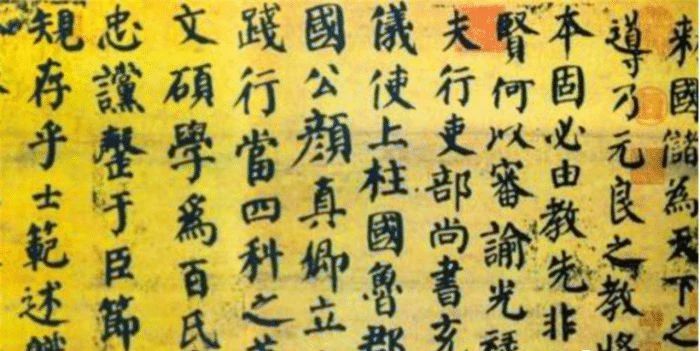 来國儲為天下之
導乃元良之教將
本固必由教先非
賢何以審諭光祿
夫行吏部尚書充
儀使上柱國魯郡
國公顏真卿立
踐行當四科之
文碩學爲百氏
忠讜罄于臣節
規存乎士範述職